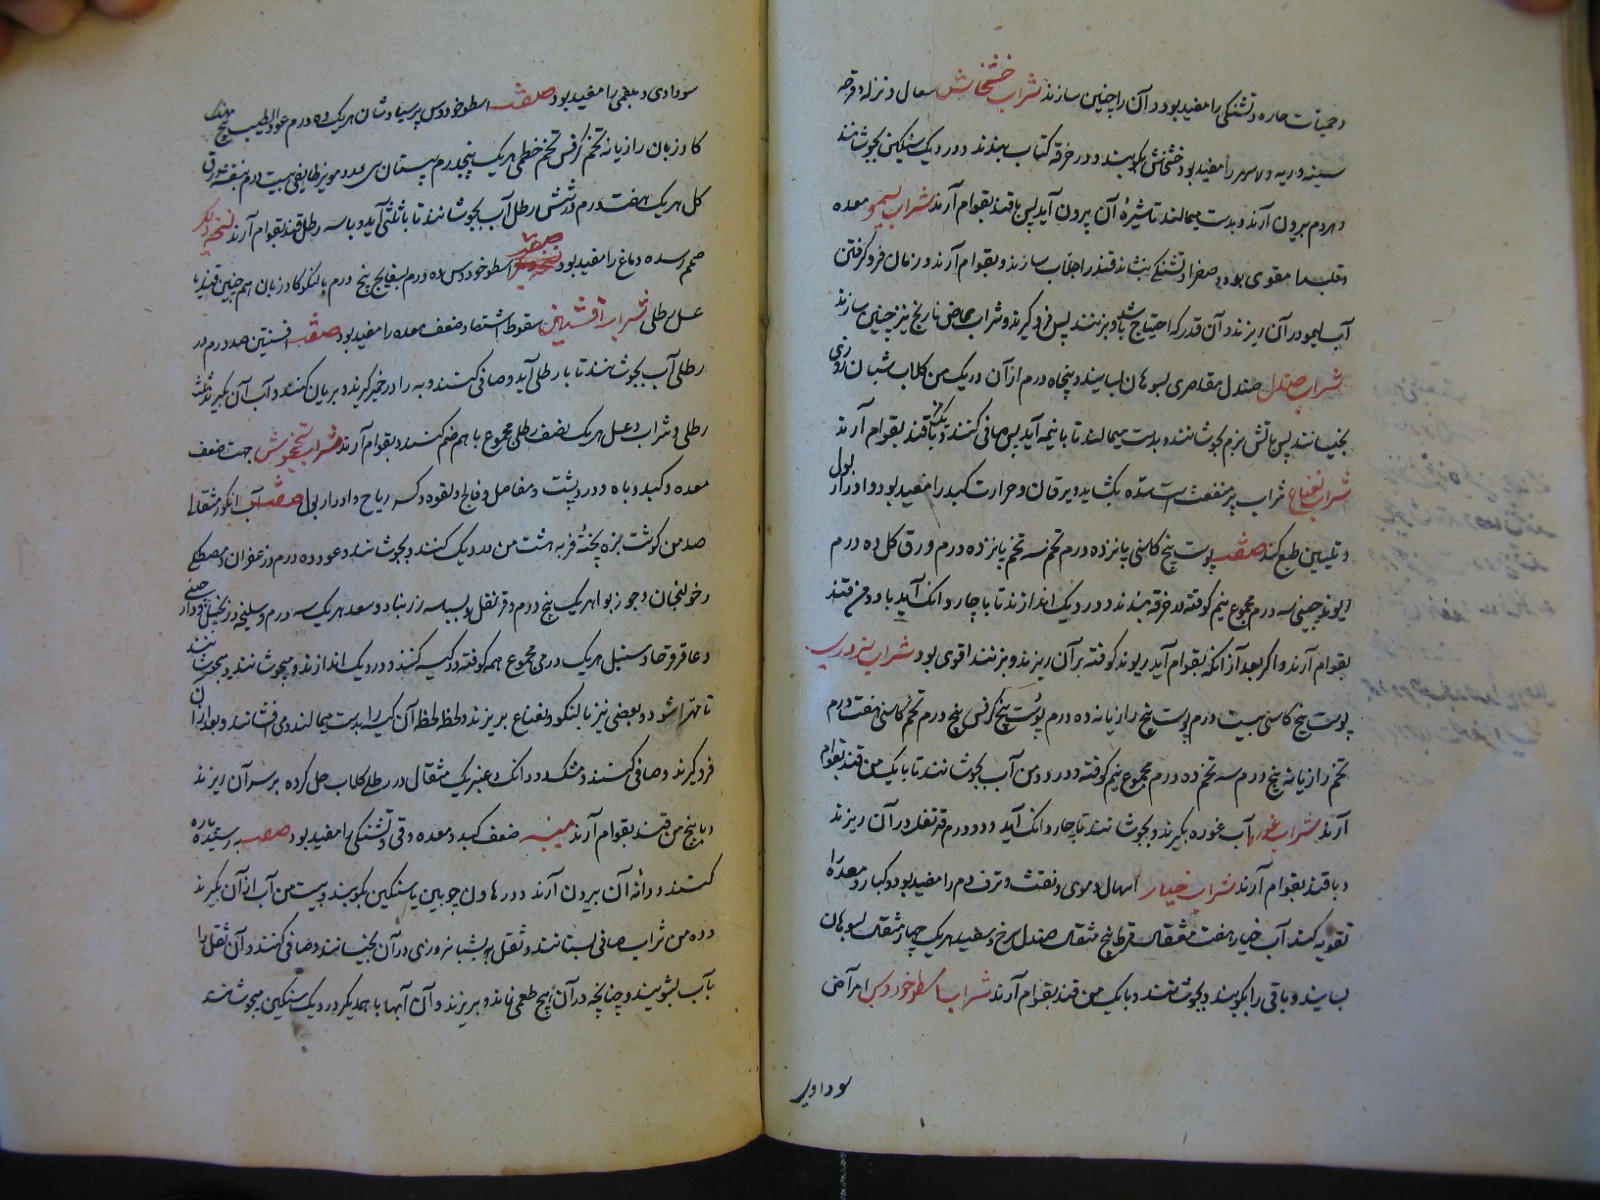 و حمیات حاره و تشنگی را مفید بود و آن را چنین سازند شراب خشخاش سعال و نزله و قرحه
سینه و ریه و را مفید بود خشخاش بکوبند و در خرقه کتاب بندند و در دیک سنگین بجوشانند
و هر دم بیرون آرند و بدست میمالند تا شیرهٔ آن بیرون آید پس با قند بقوام آرند شراب لیمو معده
و قلب را مقوی بود و صفرا و تشنگی بنشاند قند را جلاب سازند و بقوام آرند و زمان فرو گرفتن
آب لیمو در آن ریزند و آن قدر که احتیاج باشد و بزنند پس فرو گیرند و شراب حماض نارنج نیز چنین سازند
شراب صندل صندل مقاصری بسوهان بسایند و پنجاه درم از آن در یک من گلاب شبان روزی
بخیسانند پس باتش نرم بجوشانند و بدست میمالند تا با نیمه آید پس صافی کنند و با یکمن قند بقوام آرند
شراب نعناع شراب پر منفعت است سده بگشاید و یرقان و حرارت کبد را مفید بود و ادرار بول
و تلیین طبع کند صفت پوست بیخ کاسنی پانزده درم تخم سه تخم پانزده درم ورق کل ده درم
ریوند چینی سه درم مجموع نیم کوفته در خرقه بندند و در دیک اندازند تا با چهار دانک آید با دو من قند
بقوام آرند و اگر بعد از آنکه بقوام آید ریوند کوفته بر آن ریزند و بزنند اقوی بود شراب بزوری
پوست بیخ کاسنی بیست درم پوست بیخ رازیانه ده درم پوست بیخ کرفس پنج درم تخم کاسنی هفت درم
تخم رازیانه پنج درم سه تخم ده درم مجموع نیم کوفته و در دو من آب بجوشانند تا با یک من قند بقوام
آرند شراب غوره آب غوره بگیرند و بجوشانند تا چهار دانک آید و دو درم قرنفل در آن ریزند
و با قند بقوام آرند شراب خیار اسهال دموی و نفث و نزف دم را مفید بود و کبد و معده را
تقویه کند آب خیار هفت مثقال قرط پنج مثقال صندل سرخ و سفید هریک چهار مثقال بسوهان
بسایند و باقی را بکوبند و بجوشانند و با یک من قند بقوام آرند شراب اسطوخودوس امراض
سوداوی
سوداوی و بلغمی را مفید بود صفت اسطوخودوس پرسیاوشان هریک ده درم عود الطیب بیخ مهک
کاوزبان رازیانه تخم کرفس تخم خطمی هریک پنجدرم سپستان سی عدد مویز طایفی بیست درم بنفشه ورق
کل هریک هفت درم در شش رطل آب بجوشانند تا با ثلثی آید و با سه رطل قند بقوام آرند نسخه دیگر
صمم و سده دماغ را مفید بود صفت اسطوخودوس ده درم بسفایج پنج درم بالنکو کاوزبان هم چنین قند با
عسل رطلی شراب افسنتین سقوط اشتها و ضعف معده را مفید بود صفت افسنتین صد درم در
رطلی آب بجوشانند تا با رطلی آید و صافی کنند و به را در خمیر گیرند و بریان کنند و آب آن بگیرند ثلث
رطلی و شراب و عسل هریک نصف رطلی مجموع با هم ضم کنند و بقوام آرند شراب جهت ضعف
معده و کبد و باه و درد پشت و مفاصل و فالج و لقوه و کسر ریاح و ادرار بول صفت آب انکور مثقال
صد من کوشت بره پختهٔ فربه هشت من در دیک کنند و بجوشانند و عود ده درم و زعفران و مصطکی
و خولنجان و جوز بوا هریک پنج درم و قرنفل و بسباسه زرنباد و سعد هریک سه درم و سلیخه و زنجبیل و دارچینی
و عاقرقرحا و سنبل هریک درمی مجموع همه کوفته در کیسه کنند و در دیک اندازند و میجوشانند و میجنبانند
تا مهرا شود و بعضی نیز بالنکو و نعناع بریزند و لحظه لحظه آن کیسه را بدست میمالند و می افشانند و بعد از آن
فرو گیرند و صافی کنند و مشک دو دانک و عنبر یک مثقال در رطلی گلاب حل کرده بر سر آن ریزند
و با پنج من قند بقوام آرند میبه ضعف کبد و معده و قی و تشنکی را مفید بود صفت به رسیده پاره
کنند و دانه آن بیرون آرند و در هاون چوبین یا سنکین بکوبند و بیست من آب از آن بگیرند
و ده من شراب صافی بستانند و ثقل به شبانه روزی در آن بخیسانند و صافی کنند و آن ثقل را
بآب بشویند و چنانچه در آن هیچ طعمی نماند و بریزند و آن آبها با همدیکر در دیک سنکین میجوشانند